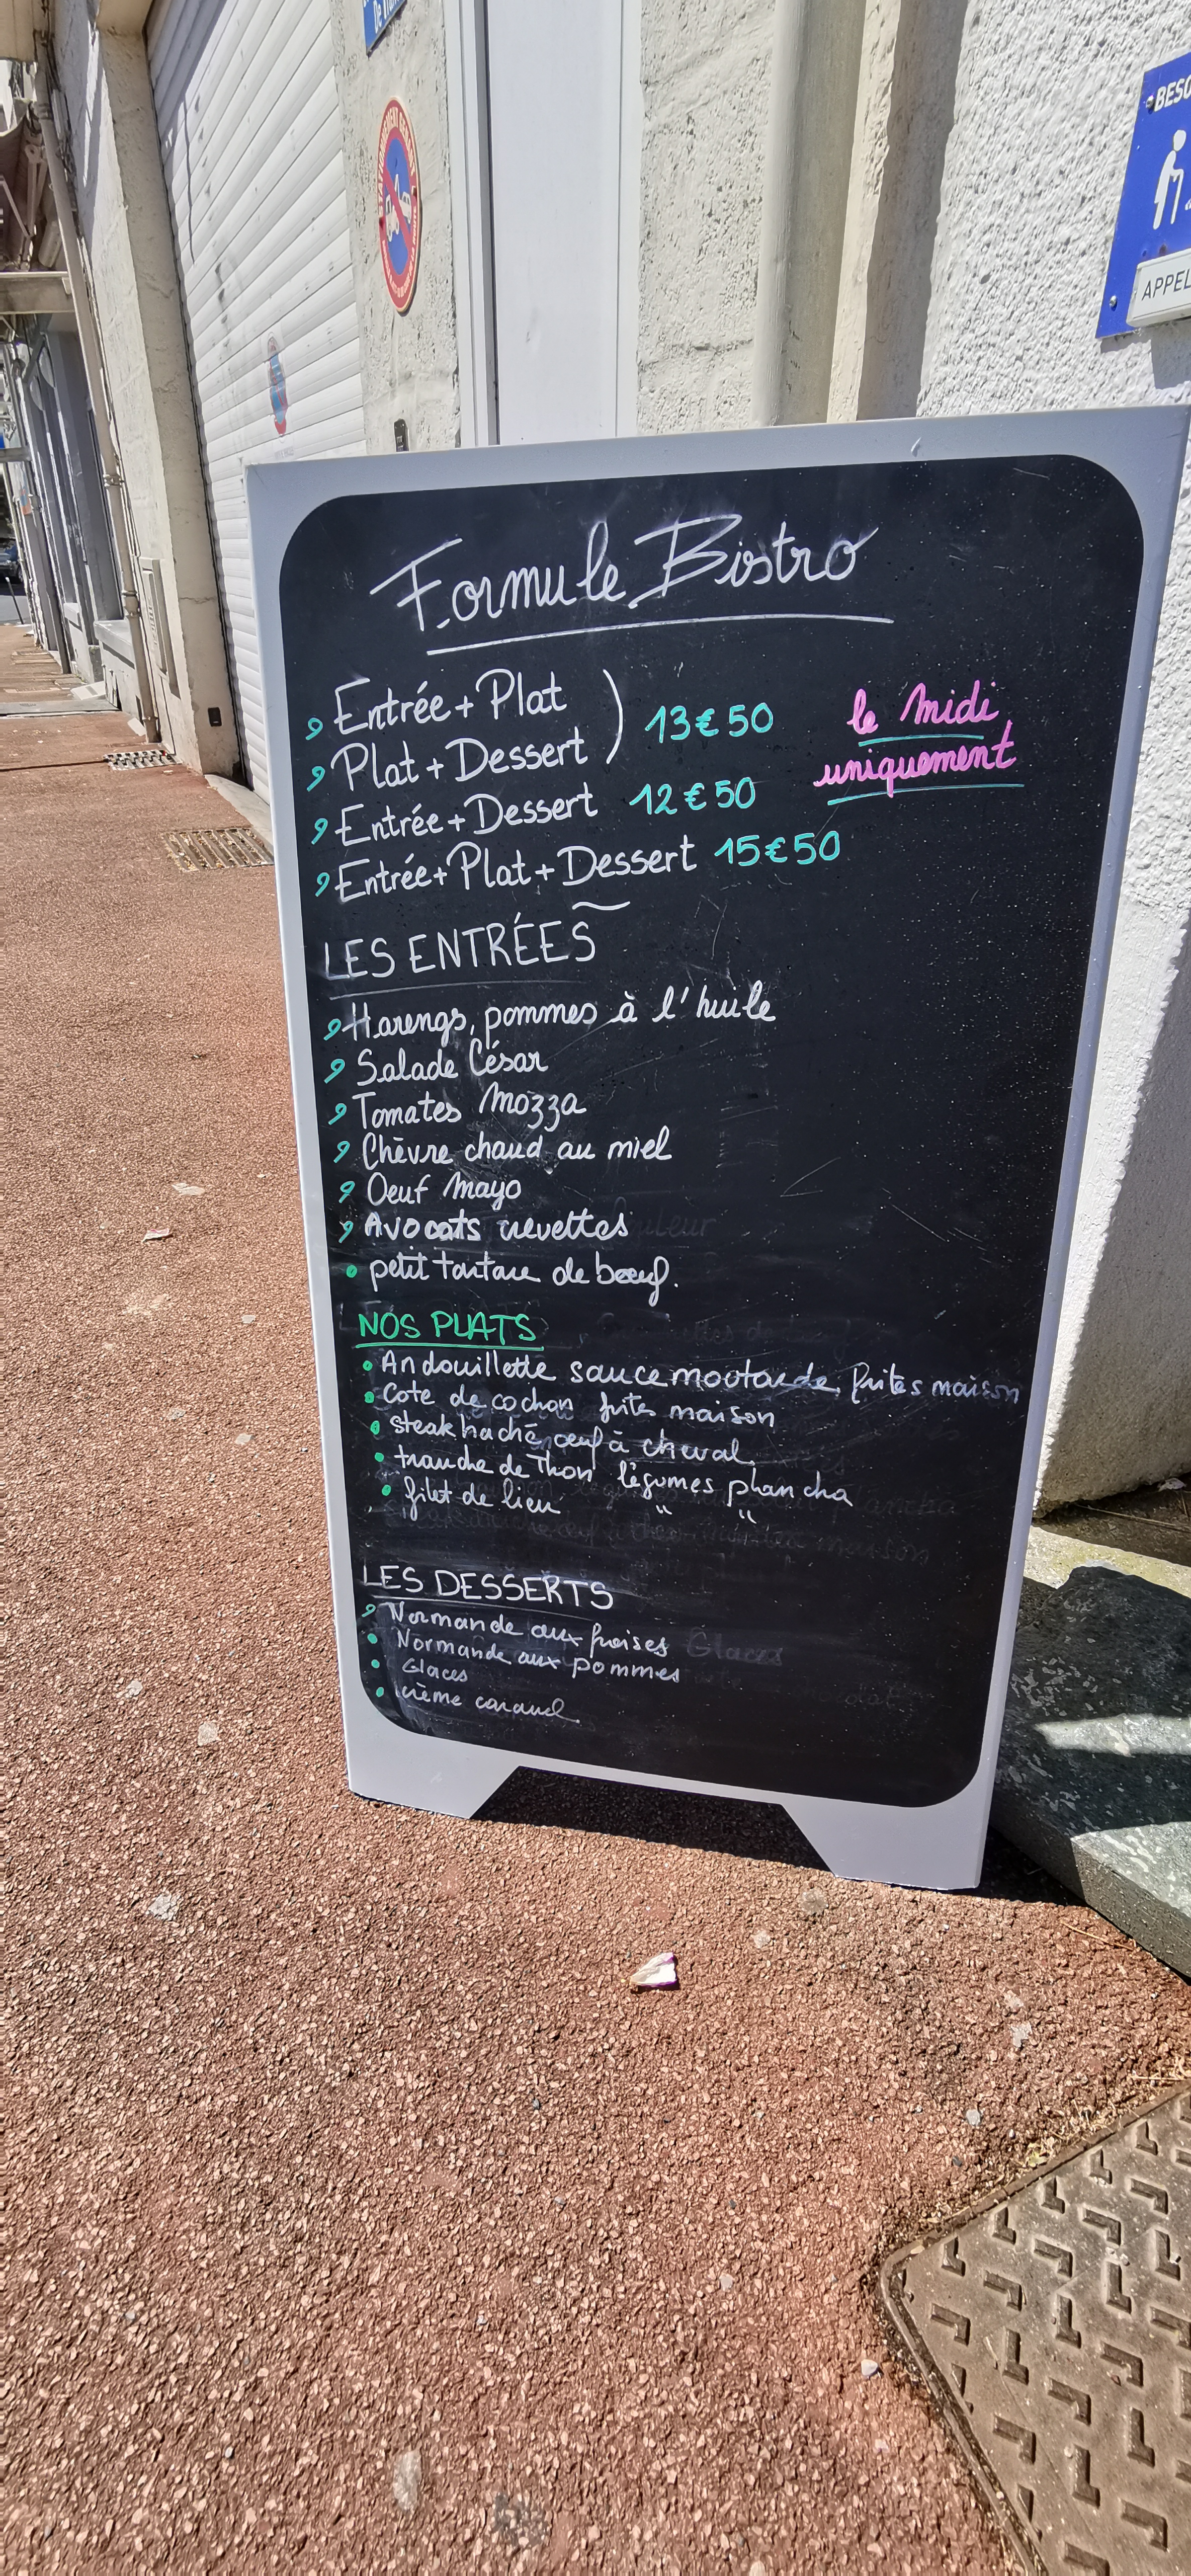 BESO
APPEL
Formule Bistro
Entrée + Plat
Plat + Dessert
13€50
le midi
uniquement
Entrée + Dessert 12€50
Entrée + Plat + Dessert 15€50
LES ENTRÉES
Harengs, pommes à l'huile
Salade César
Tomates Mozza
Chèvre chaud au miel
Oeuf Mayo
Avocats crevettes
petit tartare de bœuf.
NOS PLATS
Andouillette sauce moutarde, frites maison
Cote de cochon frites maison
steak haché, œuf à cheval.
tranche de Thon légumes plancha
filet de lieu " "
LES DESSERTS
Normande aux fraises
Normande aux pommes
Glaces
crème caramel